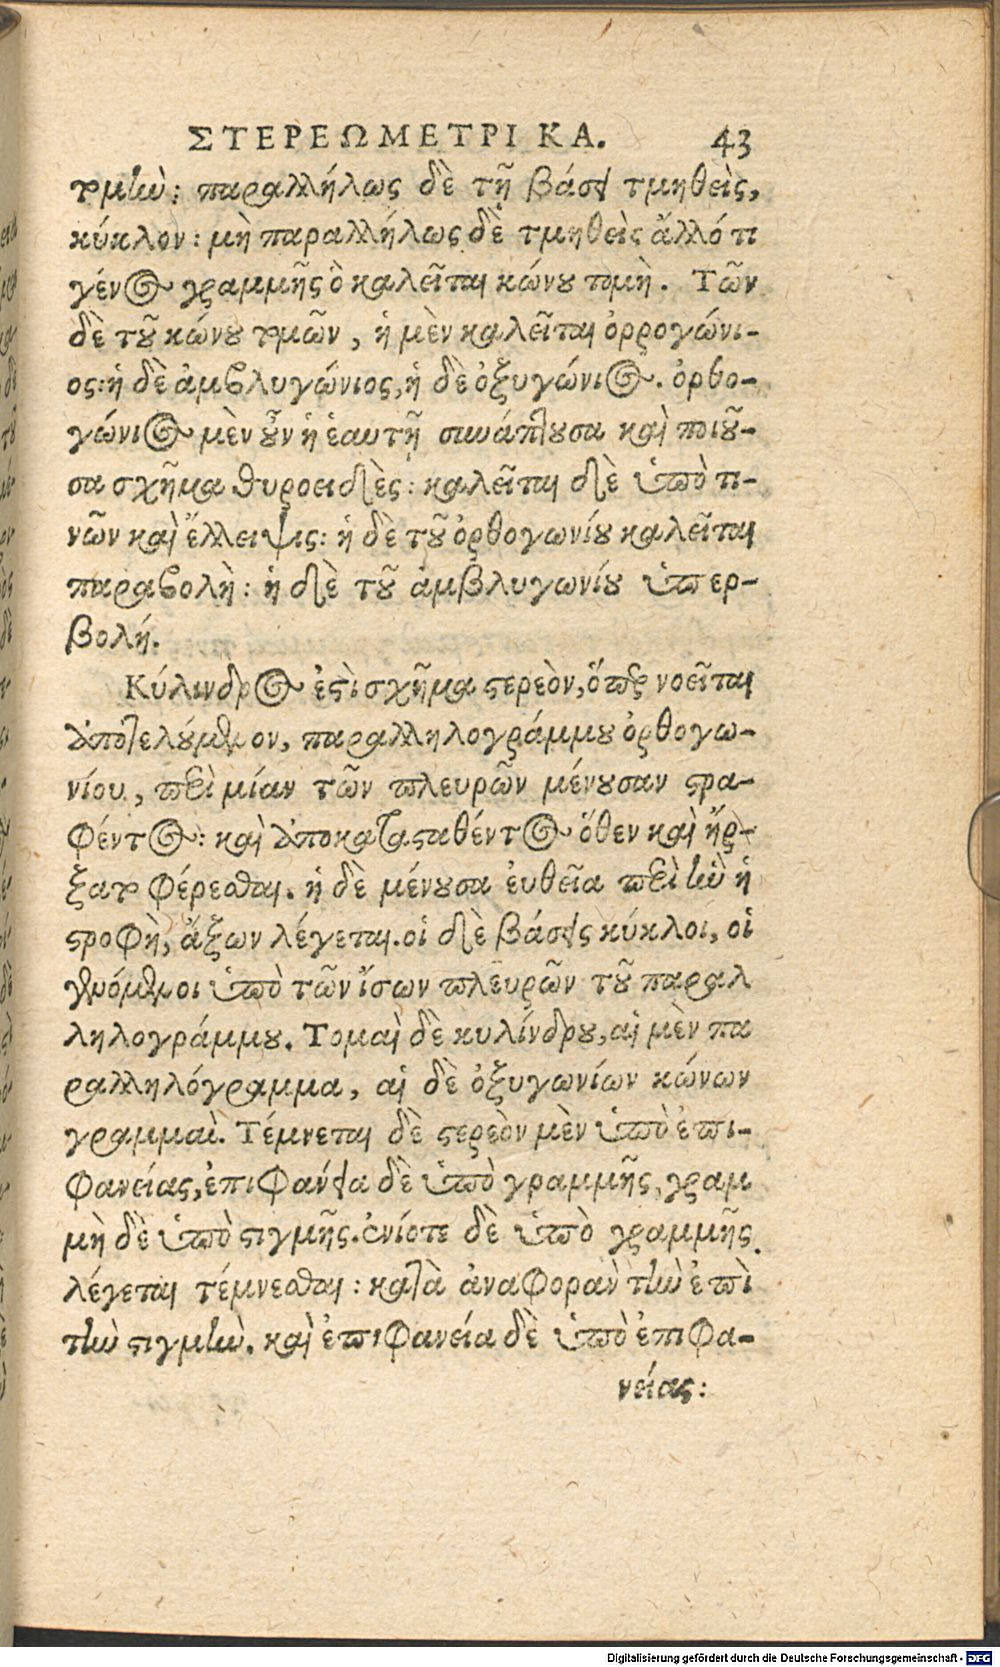 ΣΤΕΡΕΩΜΕΤΡΙΚΑ. 43
τομὴν: παραλλήλως δὲ τῇ βάσει τμηθεὶς,
κύκλον: μὴ παραλλήλως δὲ τμηθεὶς ἄλλό τι
γένος γραμμῆς ὃ καλεῖται κώνου τομὴ. Τῶν
δὲ τοῦ κώνου τομῶν, ἡ μὲν καλεῖται ὀρρογώνι-
ος: ἡ δὲ ἀμβλυγώνιος, ἡ δὲ ὀξυγώνιος. ὀρθο-
γώνιος μὲν οὖν ἡ ἑαυτῇ συνάπτουσα καὶ ποιοῦ-
σα σχῆμα θυροειδὲς: καλεῖται δὲ ὑπὸ τι-
νῶν καὶ ἔλλειψις: ἡ δὲ τοῦ ὀρθογωνίου καλεῖται
παραβολὴ: ἡ δὲ τοῦ ἀμβλυγωνίου ὑπερ-
βολή.
Κύλινδρος ἐστὶ σχῆμα στερεὸν, ὅπερ νοεῖται
ἀποτελούμενον, παραλληλογράμμου ὀρθογω-
νίου, περὶ μίαν τῶν πλευρῶν μένουσαν στρα-
φέντος: καὶ ἀποκατασταθέντος ὅθεν καὶ ἤρ-
ξατο φέρεσθαι. ἡ δὲ μένουσα εὐθεῖα περὶ ἣν ἡ
στροφὴ, ἄξων λέγεται. οἱ δὲ βάσεις κύκλοι, οἱ
γενόμενοι ὑπὸ τῶν ἴσων πλευρῶν τοῦ παραλ
ληλογράμμου. Τομαὶ δὲ κυλίνδρου, αἱ μὲν πα
ραλληλόγραμμα, αἱ δὲ ὀξυγωνίων κώνων
γραμμαὶ. Τέμνεται δὲ στερεὸν μὲν ὑπὸ ἐπι-
φανείας, ἐπιφάνεια δὲ ὑπὸ γραμμῆς, γραμ
μὴ δὲ ὑπὸ στιγμῆς. ἐνίοτε δὲ ὑπὸ γραμμῆς
λέγεται τέμνεσθαι: κατὰ ἀναφορὰν τὴν ἐπὶ
τὴν στιγμὴν. καὶ ἐπιφανεία δὲ ὑπὸ ἐπιφα-
νείας:
Digitalisierung gefördert durch die Deutsche Forschungsgemeinschaft - DFG